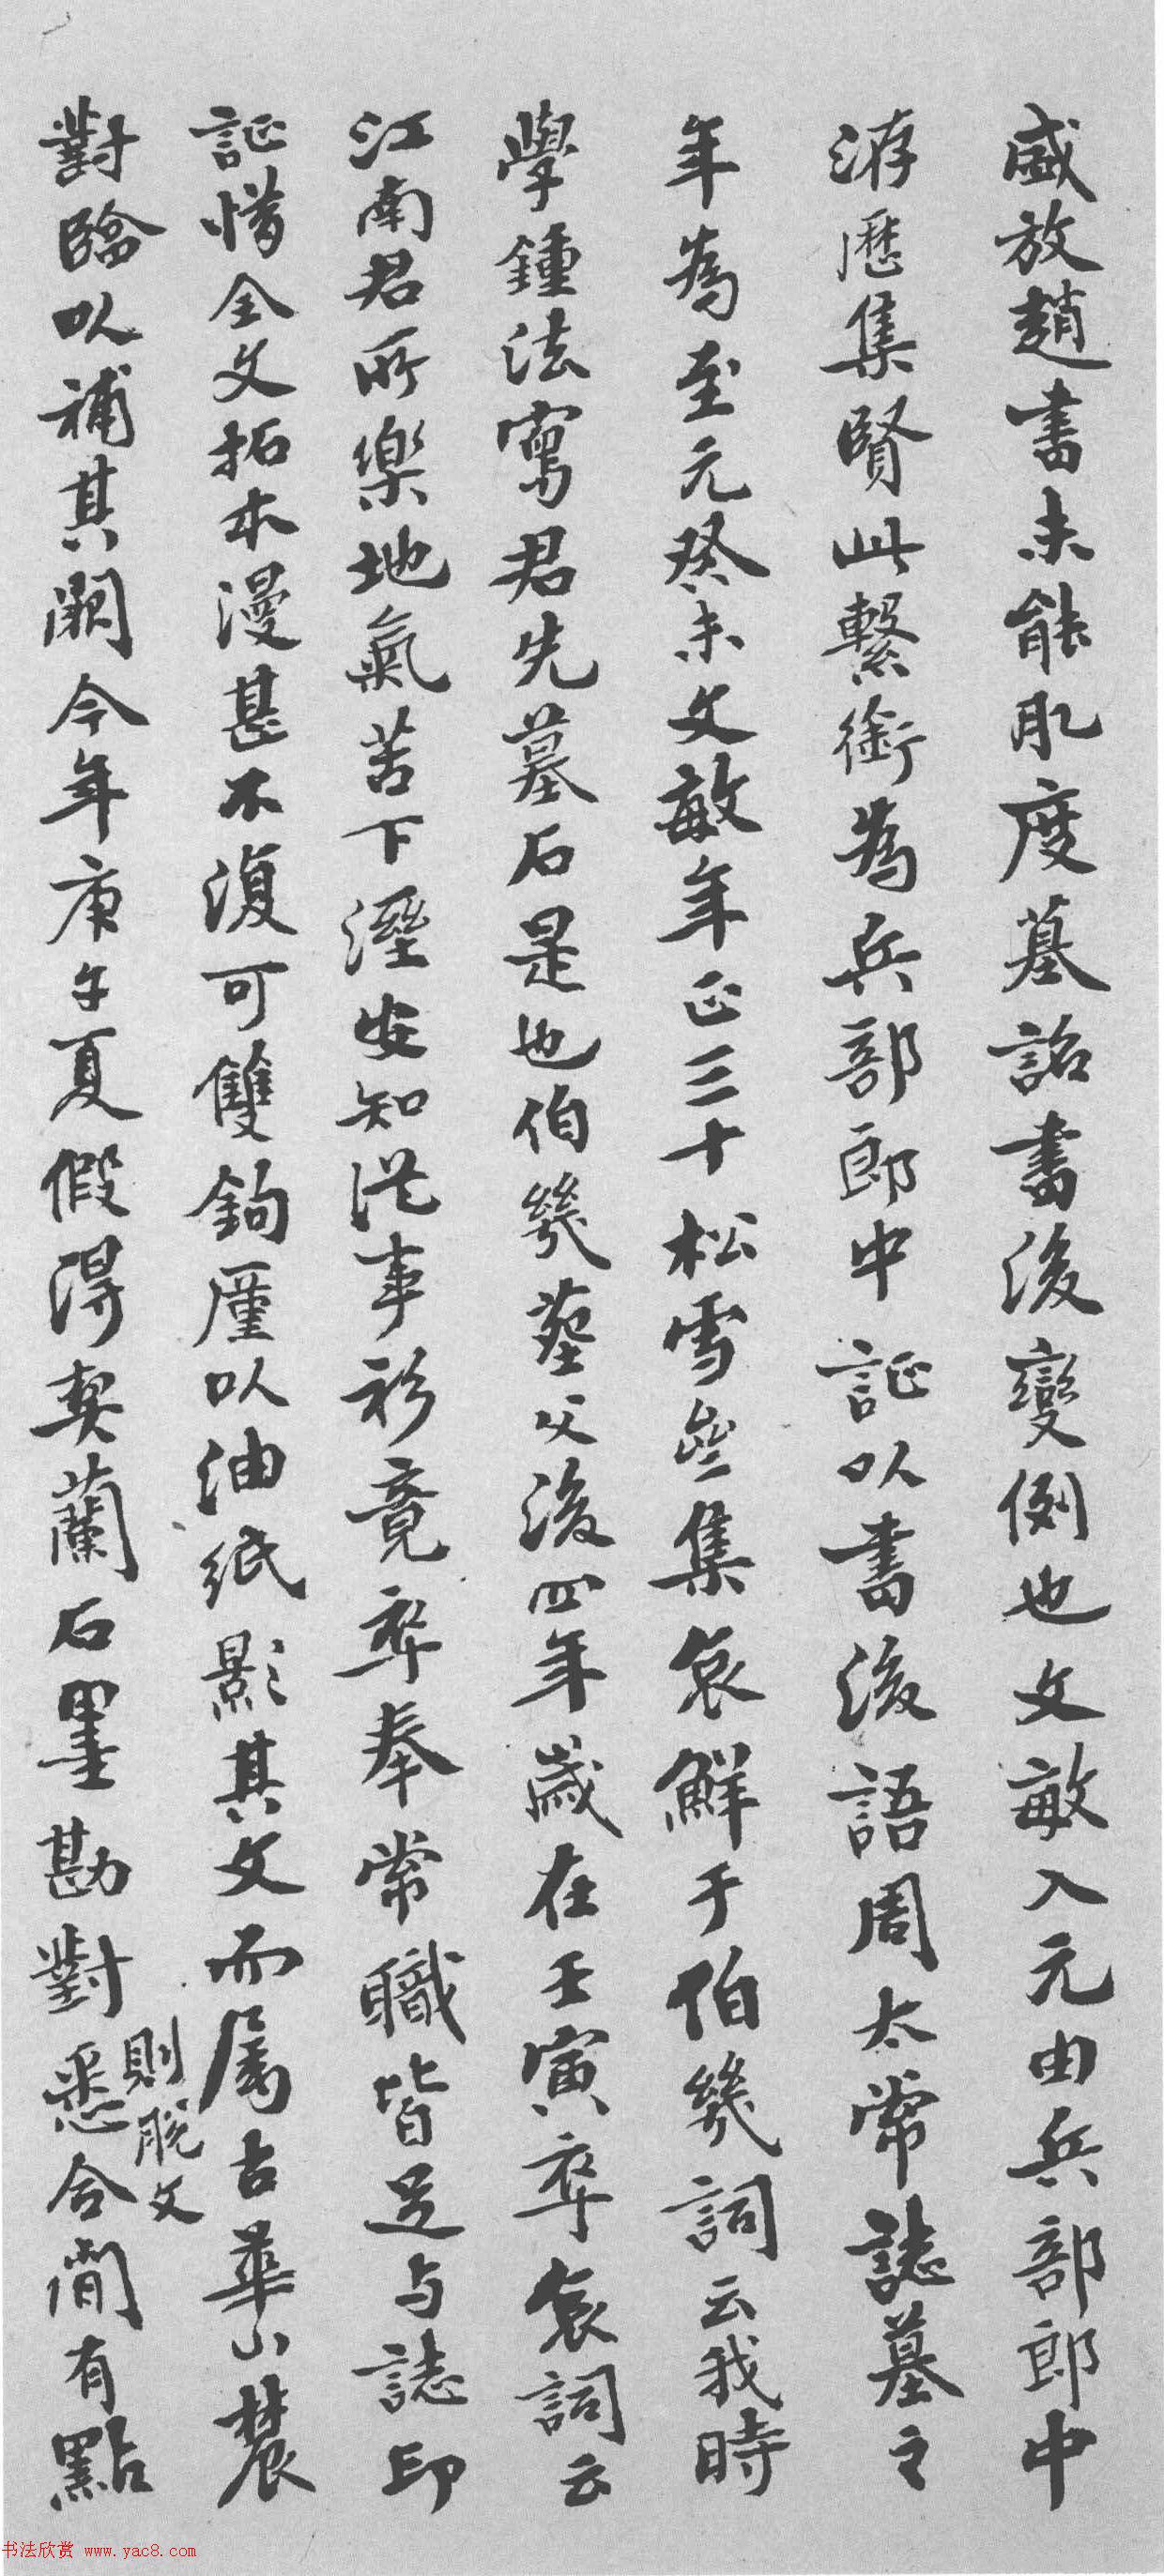 盛放趙書未能肊度墓誌書後變例也文敏入元由兵部郎中
洊歷集賢此繫銜為兵部郎中証以書後語周太常誌墓之
年為至元癸未文敏年正三十松雪垒集哀鮮于伯幾詞云我時
學鍾法寫君先墓石是也伯幾葬父後四年歲在壬寅卒哀詞云
江南君所樂地氣苦下溼安知從事衫竟卒奉常職皆足与誌印
証惜全文拓本漫甚不復可雙鉤廑以油紙影其文而属古華山農
對臨以補其闕今年庚午夏假得契蘭石墨勘對悉合間有點
則脫文
书法欣赏 www.yac8.com